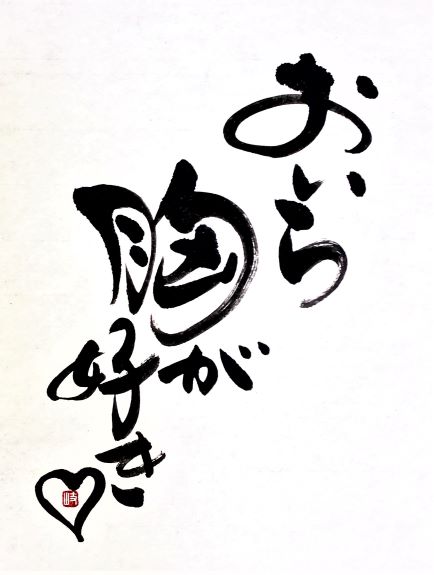 おいら
胸が
好き
岐